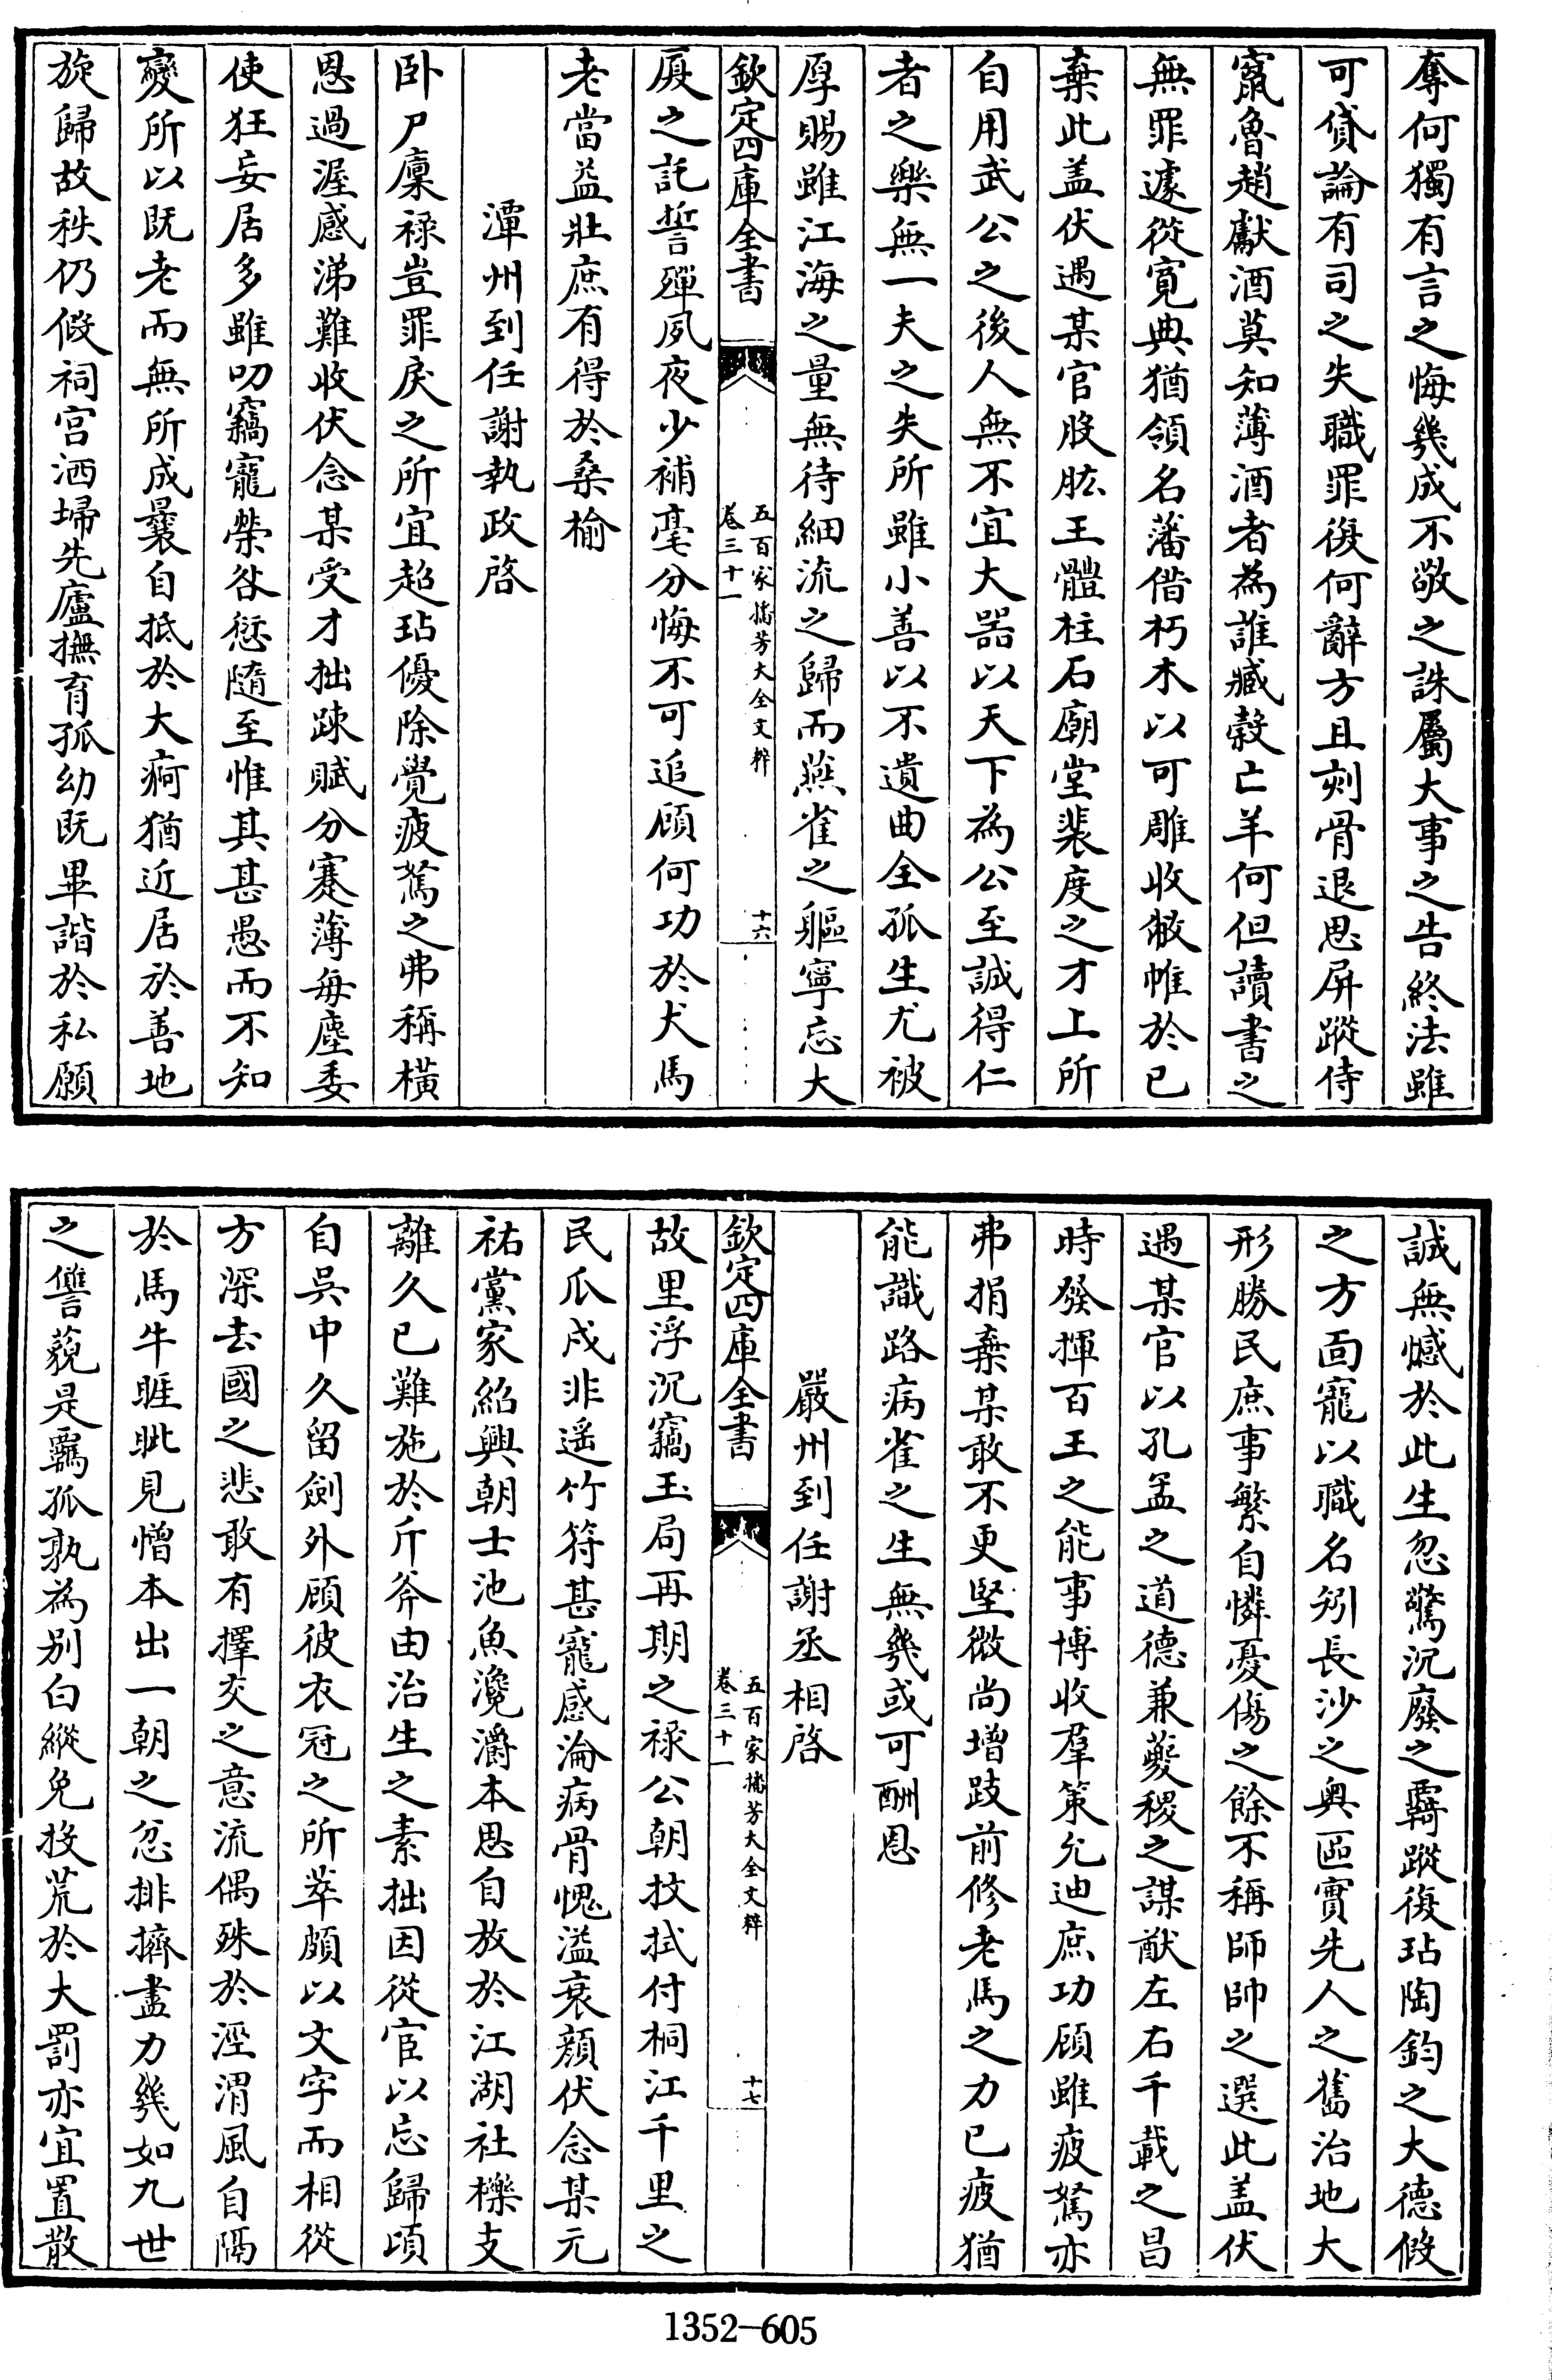 奪何獨有言之悔幾成不敬之誅屬大事之告終法雖
可貸論有司之失職罪復何辭方且刻骨退思屏蹤侍
竄魯趙獻酒莫知薄酒者為誰臧穀亡羊何但讀書之
無罪遽從寛典猶領名藩借朽木以可雕收敝帷於已
棄此盖伏遇某官股肱王體柱石廟堂裴度之才上所
自用武公之後人無不宜大器以天下為公至誠得仁
者之樂無一夫之失所雖小善以不遺曲全孤生尤被
厚賜雖江海之量無待細流之歸而燕雀之軀寧忘大
欽定四庫全書
五百家播芳大全文粹
卷三十一
十六
厦之託誓殫夙夜少補毫分悔不可追顧何功於犬馬
老當益壯庶有得於桑榆
潭州到任謝執政啓
卧尸廩禄豈罪戾之所宜超玷優除覺疲駑之弗稱横
恩過渥感涕難收伏念某受才拙踈賦分蹇薄每塵委
使狂妄居多雖叨竊寵榮咎愆隨至惟其甚愚而不知
變所以既老而無所成曩自抵於大痾猶近居於善地
旋歸故秩仍假祠宫洒埽先廬撫育孤幼既畢諧於私願
誠無憾於此生忽驚沉廢之覊蹤復玷陶鈞之大德假
之方面寵以職名矧長沙之奥區實先人之舊治地大
形勝民庶事繁自憐憂傷之餘不稱師帥之選此盖伏
遇某官以孔孟之道德兼夔稷之謀猷左右千載之昌
時發揮百王之能事博收羣策允迪庶功顧雖疲駑亦
弗捐棄某敢不更堅微尚增跂前修老馬之力已疲猶
能識路病雀之生無幾或可酬恩
嚴州到任謝丞相啓
欽定四庫全書
五百家播芳大全文粹
卷三十一
十七
故里浮沉竊玉局再期之禄公朝抆拭付桐江千里之
民瓜戍非遥竹符甚寵感淪病骨愧溢衰顔伏念某元
祐黨家紹興朝士池魚瀺灂本思自放於江湖社櫟支
離久已難施於斤斧由治生之素拙因從宦以忘歸頃
自吳中久留劍外顧彼衣冠之所萃頗以文字而相從
方深去國之悲敢有擇交之意流偶殊於涇渭風自隔
於馬牛睚眦見憎本出一朝之忿排擠盡力幾如九世
之讐藐是覊孤孰為别白縱免投荒於大罰亦宜置散
1352—605